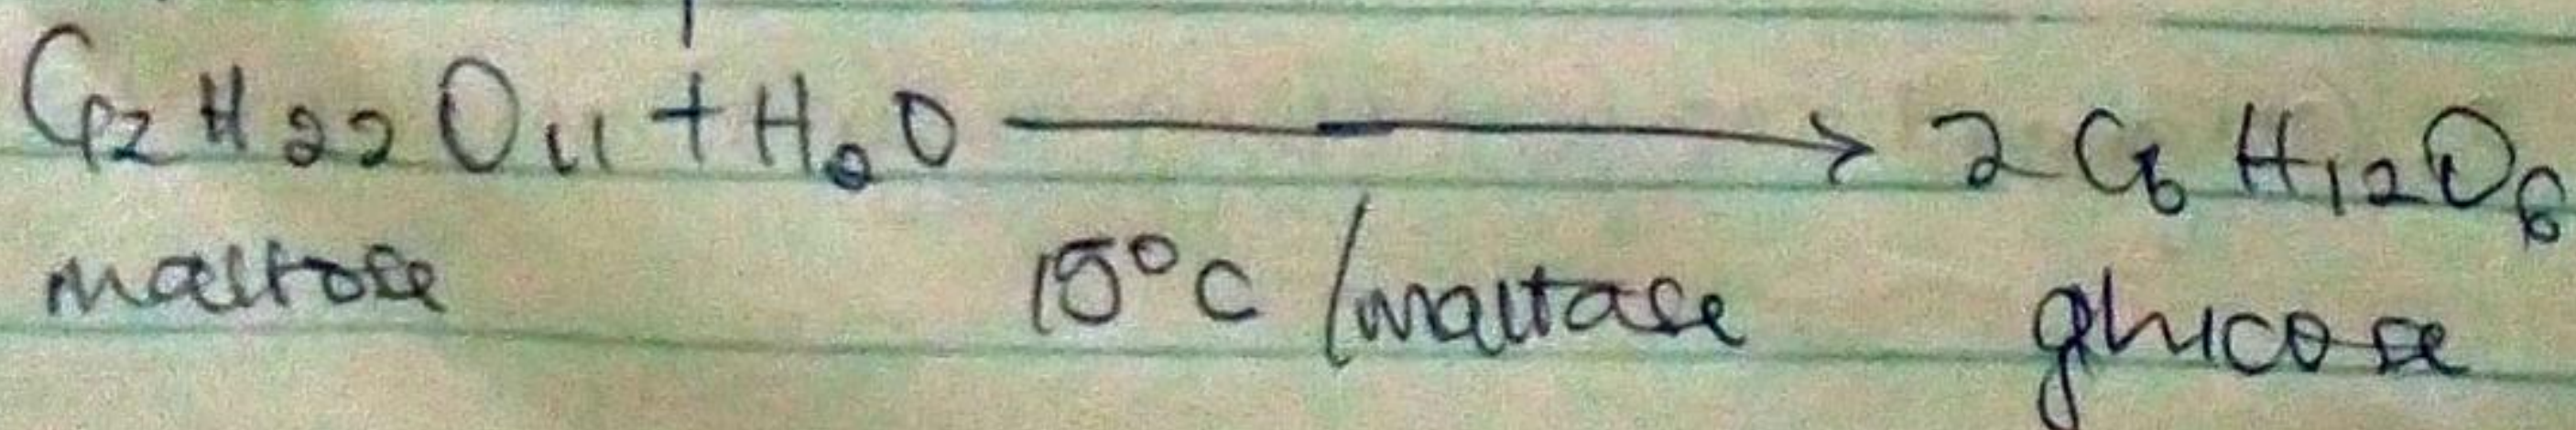 C₁₂H₂₂O₁₁ + H₂O ⟶ 2C₆H₁₂O₆
maltose 15°C / maltase glucose